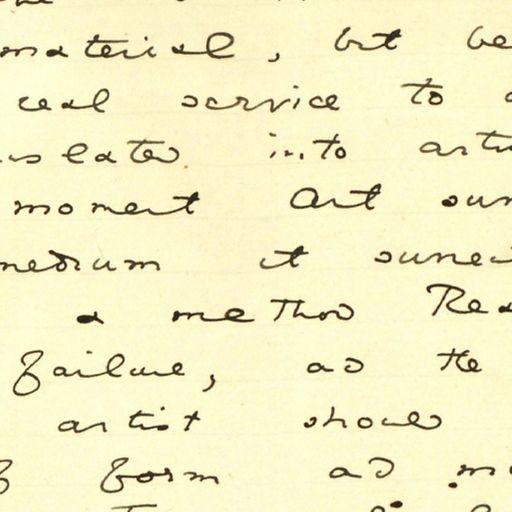 material, but be
real service to
slated into arti
moment Art surr
medium it surre
a method Rea
failure, and the
artist should
of form and mo